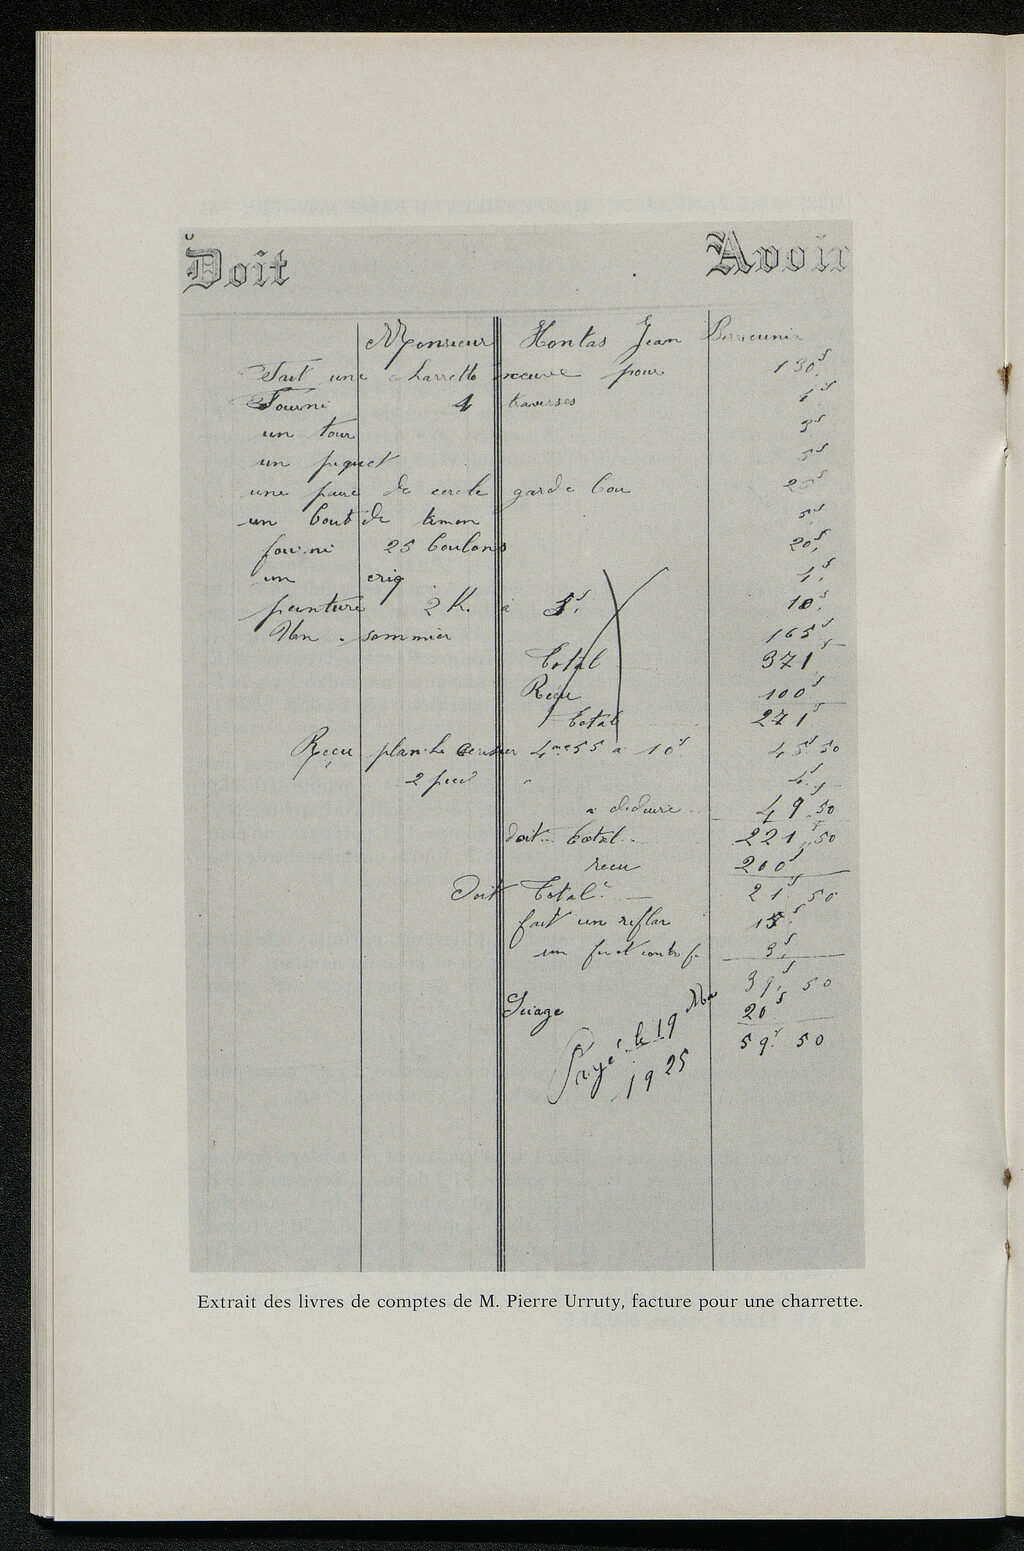 Doit Avoir
Monsieur Hontas Jean
Fait une charrette neuve pour 130f
Fourni 4 traverses
un tour 3f
un piquet 5f
une paire de cercle garde bou 25f
un bout de timon 5f
fourni 25 boulons 20f
un criq
peinture 2 K. à 10f
sommier 165f
Total 371f
Reçu 100f
Total 271f
Reçu planche 4me55 à 10f 45f50
2 4f
a deduire 49.50
doit Total 221f50
recu 200f
Doit Total 21f50
fait un riflar 15f
un 3f
39f50
Sciage 20f
59f50
Payé le 19
1925
Extrait des livres de comptes de M. Pierre Urruty, facture pour une charrette.